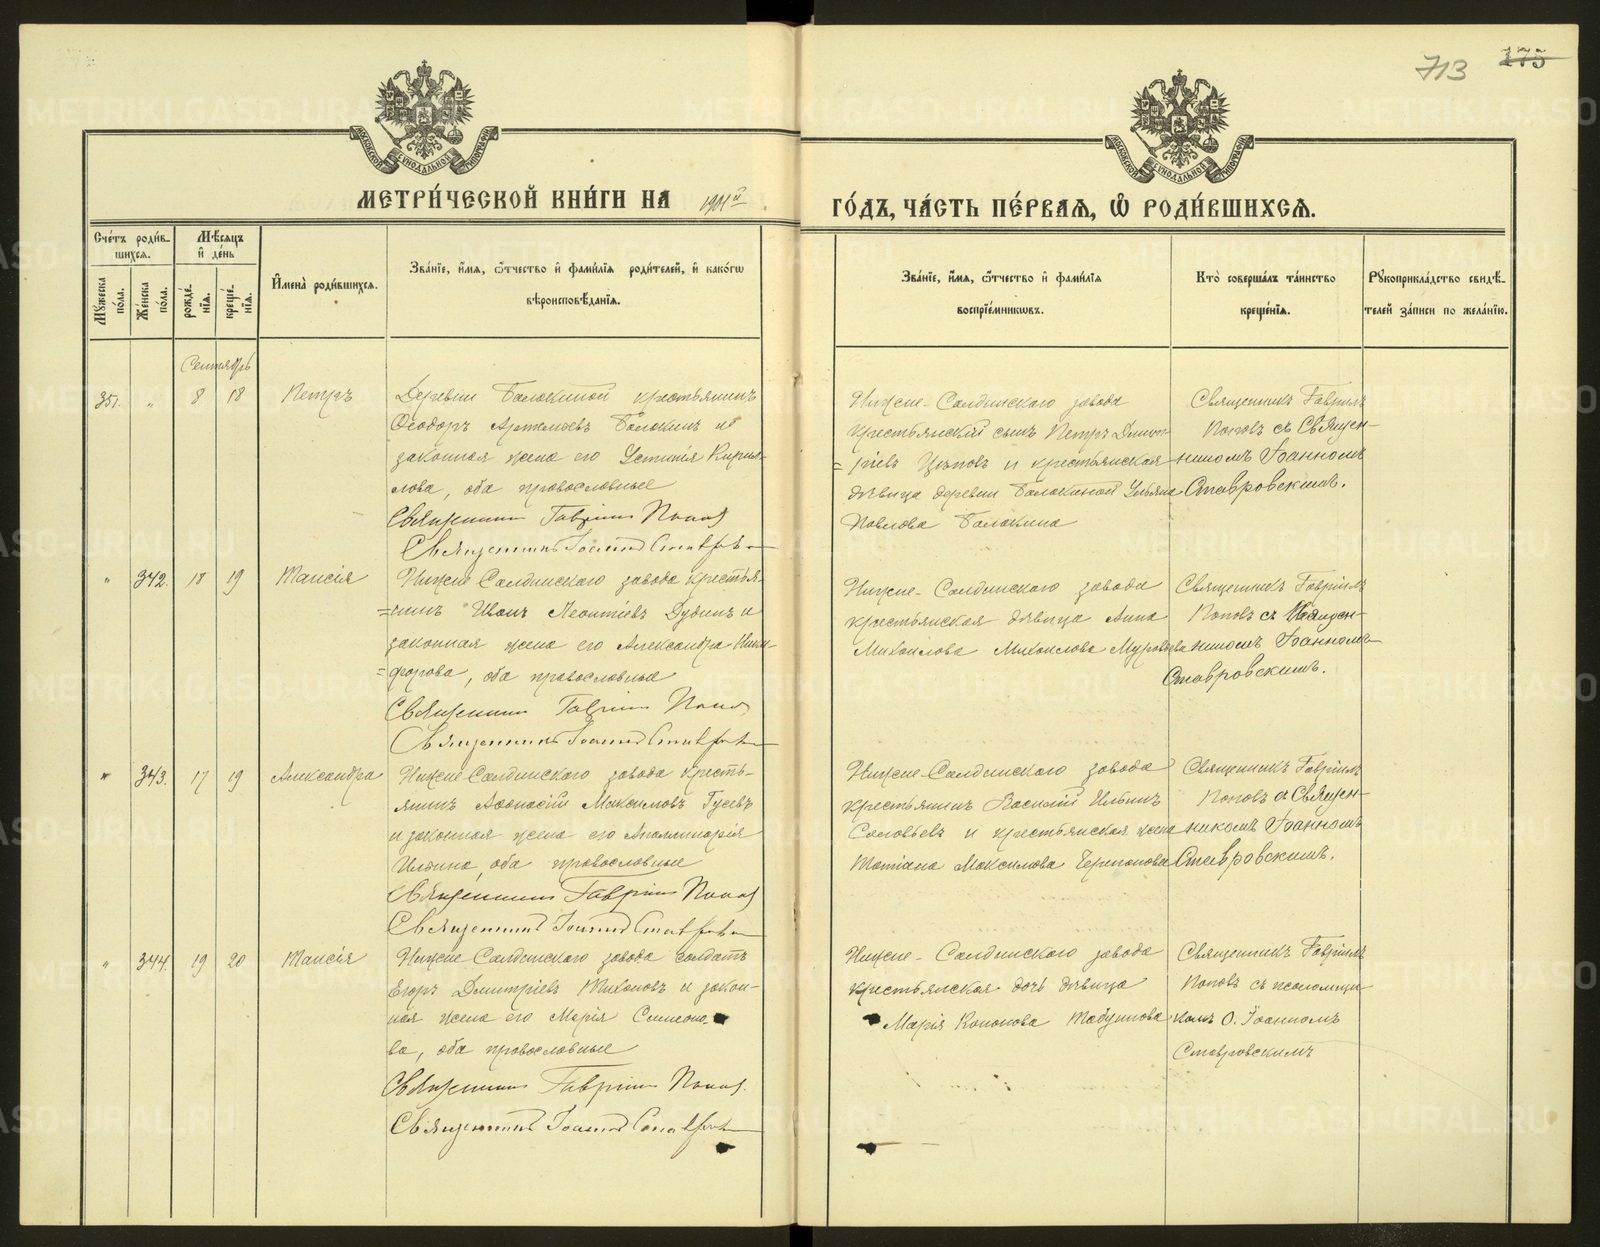 713 175
МОСКОВСКОЙ СУНОДАЛЬНОЙ ТИПОГРАФІИ
МОСКОВСКОЙ СУНОДАЛЬНОЙ ТИПОГРАФІИ
МЕТРИ́ЧЕСКОЙ КНИ́ГИ НА 1901й
ГО́ДЪ, ЧА́СТЬ ПЕ́РВАЯ, Ѡ РОДИ́ВШИХСЯ.
Сче́тъ роди́в-
шихся.
Мѣ́сяцъ
и де́нь
Му́жеска по́ла.
Же́нска по́ла.
рожде́нія.
креще́нія.
Имена̀ роди́вшихся.
Зва́ніе, и́мя, ѻ́тчество и фами́лія роди́телей, и како́гѡ
вѣроисповѣ́данія.
Зва́ніе, и́мя, ѻ́тчество и фами́лія
воспріе́мникѡвъ.
Кто̀ соверша́лъ та́инство
креще́нія.
Рукоприкла́дство свидѣ́-
телей за́писи по жела́нію.
Сентябрь
351. " 8 18 Петръ
Деревни Балакиной крестьянинъ
Ѳеодоръ Артемьевъ Балакинъ и
законная жена его Устинія Кирил-
лова, оба православные
Священникъ Гавріилъ Попов
Священникъ Іоаннъ Ставровскій
Нижне-Салдинскаго завода
крестьянскій сынъ Петръ Димит-
=ріевъ Цѣповъ и крестьянская
дѣвица деревни Балакиной Ульяна
Павлова Балакина
Священникъ Гавріилъ
Поповъ съ Священ-
никомъ Іоанномъ
Ставровскимъ.
" 342. 18 19 Таисія
Нижне Салдинскаго завода крестья-
=нинъ Иванъ Леонтіевъ Дудинъ и
законная жена его Александра Ники-
=форова, оба православные
Священникъ Гавріилъ Попов
Священникъ Іоаннъ Ставровскій
Нижне-Салдинскаго завода
крестьянская дѣвица Анна
Михаилова Михаилова
Священникъ Гавріилъ
Поповъ съ Священ-
никомъ Іоанномъ
Ставровскимъ.
" 343. 17 19 Александра
Нижне-Салдинскаго завода кресть-
янинъ Афонасій Максимовъ Гусевъ
и законная жена его Аполлинарія
Ильина, оба православные
Священникъ Гавріилъ Попов
Священникъ Іоаннъ Ставровскій
Нижне-Салдинскаго завода
крестьянинъ Василій Ильинъ
Соловьевъ и крестьянская жена
Татіана Максимова Черепанова
Священникъ Гавріилъ
Поповъ съ Священ-
никомъ Іоанномъ
Ставровскимъ.
" 344. 19 20 Таисія
Нижне Салдинскаго завода солдатъ
Егоръ Димитріевъ Тихоновъ и закон-
ная жена его Марія Симеоно-
ва, оба православные
Священникъ Гавріилъ Попов.
Священникъ Іоаннъ Ставровскій
Нижне-Салдинскаго завода
крестьянская дочь дѣвица
Марія Кононова Табуинова
Священникъ Гавріилъ
Поповъ съ псаломщи-
комъ О. Іоанномъ
Ставровскимъ
METRIKI.GASO-URAL.RU